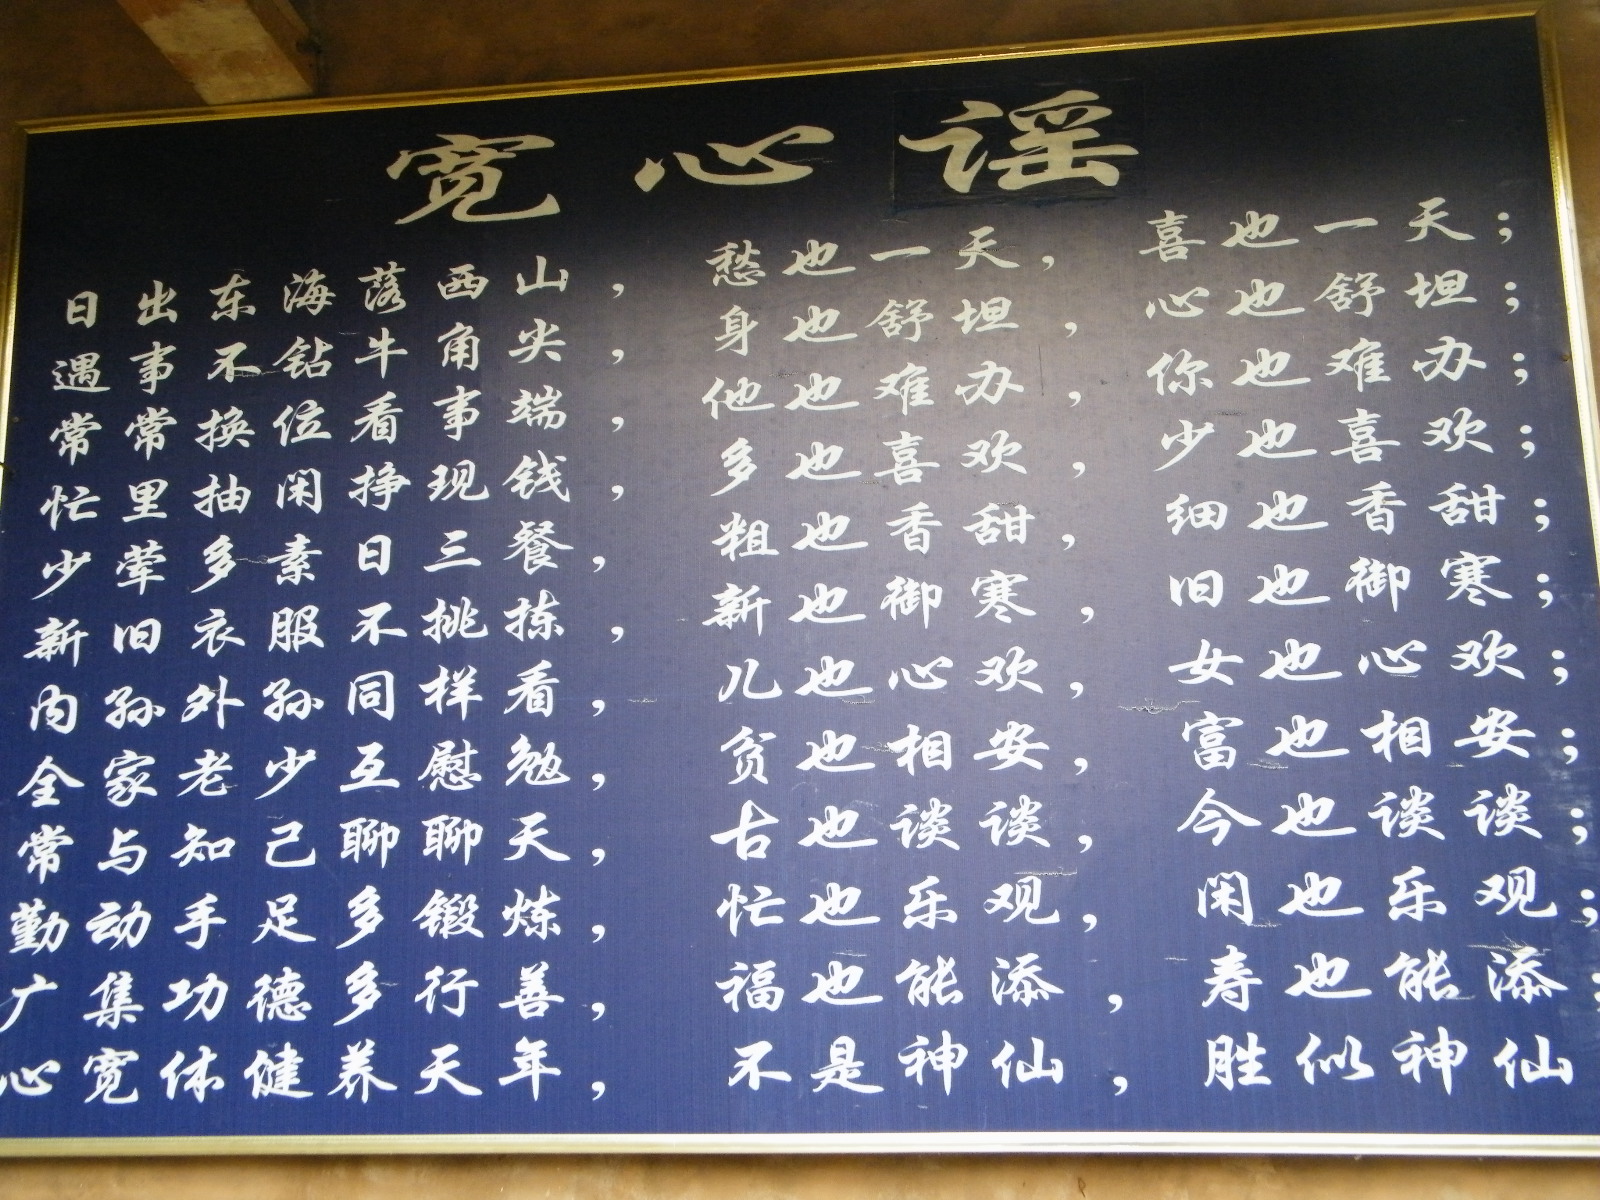 宽心谣
日出东海落西山，愁也一天，喜也一天；
遇事不钻牛角尖，身也舒坦，心也舒坦；
常常换位看事端，他也难办，你也难办；
忙里抽闲挣现钱，多也喜欢，少也喜欢；
少荤多素日三餐，粗也香甜，细也香甜；
新旧衣服不挑拣，新也御寒，旧也御寒；
内孙外孙同样看，儿也心欢，女也心欢；
全家老少互慰勉，贫也相安，富也相安；
常与知己聊聊天，古也谈谈，今也谈谈；
勤动手足多锻炼，忙也乐观，闲也乐观；
广集功德多行善，福也能添，寿也能添；
心宽体健养天年，不是神仙，胜似神仙